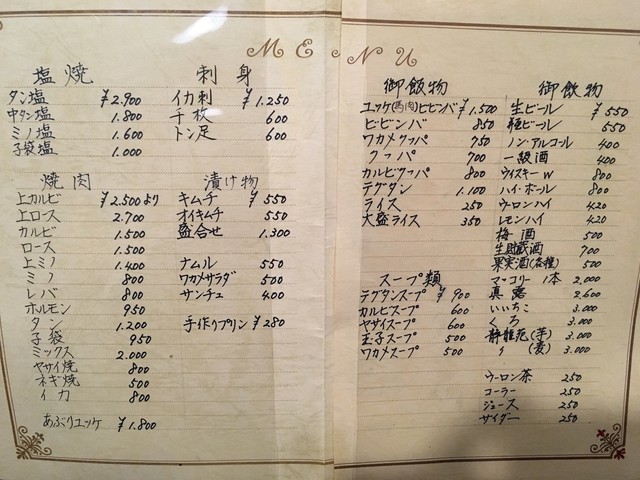 MENU
塩焼
タン塩 ¥2.900
中タン塩 1.800
ミノ塩 1.600
子袋塩 1.000
焼肉
上カルビ ¥2.500より
上ロース 2.700
カルビ 1.500
ロース 1.500
上ミノ 1.400
ミノ 800
レバ 800
ホルモン 950
タン 1.200
子袋 950
ミックス 2.000
ヤサイ焼 800
ネギ焼 500
イカ 800
あぶりユッケ ¥1.800
刺身
イカ刺 ¥1.250
千枚 600
トン足 600
漬け物
キムチ ¥550
オイキムチ 550
盛合せ 1.300
ナムル 550
ワカメサラダ 500
サンチュ 400
手作りプリン ¥280
御飯物
ユッケ(馬肉)ビビンバ ¥1.500
ビビンバ 850
ワカメクッパ 750
クッパ 700
カルビクッパ 800
テグタン 1.100
ライス 250
大盛ライス 350
スープ類
テグタンスープ ¥900
カルビスープ 600
ヤサイスープ 600
玉子スープ 500
ワカメスープ 500
御飲物
生ビール ¥550
瓶ビール 550
ノン・アルコール 400
一級酒 400
ウイスキーW 800
ハイ・ボール 800
ウーロンハイ 420
レモンハイ 420
梅酒 500
生貯蔵酒 700
果実酒(各種) 500
マッコリー1本 2.000
真露 2.600
いいちこ 3.000
くろ 3.000
(芋) 3.000
〃 (麦) 3.000
ウーロン茶 250
コーラー 250
ジュース 250
サイダー 250